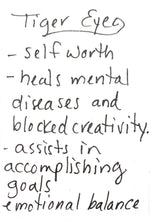 Tiger Eye
- self worth
- heals mental
diseases and
blocked creativity.
- assists in
accomplishing
goals
emotional balance